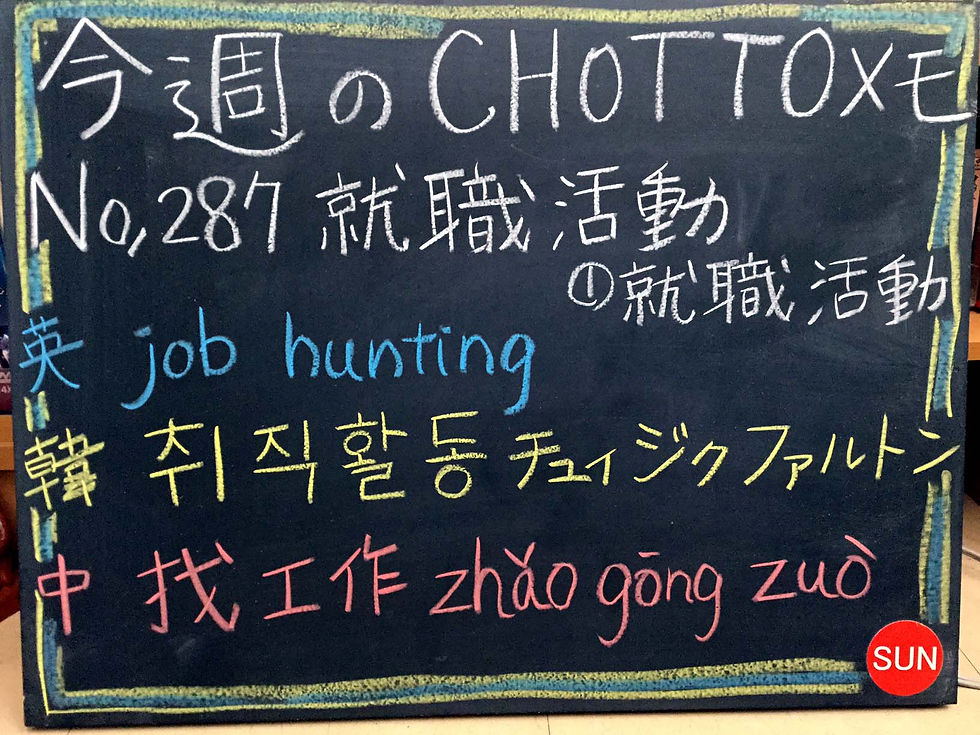 今週のCHOTTOメモ
No,287 就職活動
①就職活動
英 job hunting
韓 취직활동 チュイジクファルトン
中 找工作 zhǎo gōng zuò
SUN